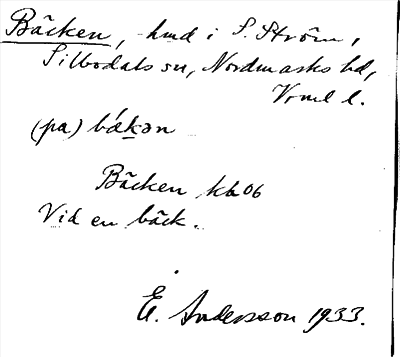 Bäcken, hmd i S. Ström,
Silbodals sn, Nordmarks hd,
Vrml l.
(pa) bä́kən
Bäcken kb 06
Vid en bäck.
E. Andersson 1933.